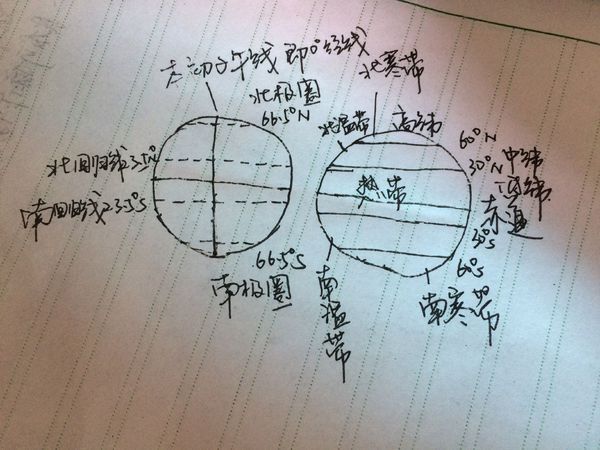 本初子午线 即0°经线
北极圈
66.5°N
北回归线23.5°N
南回归线23.5°S
66.5°S
南极圈
北寒带
北温带
高纬
60°N
30°N 中纬
低纬
热带
赤道
30°S
60°S
南温带
南寒带